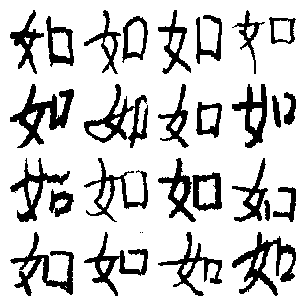 如如如如
如如如如
如如如如
如如如如